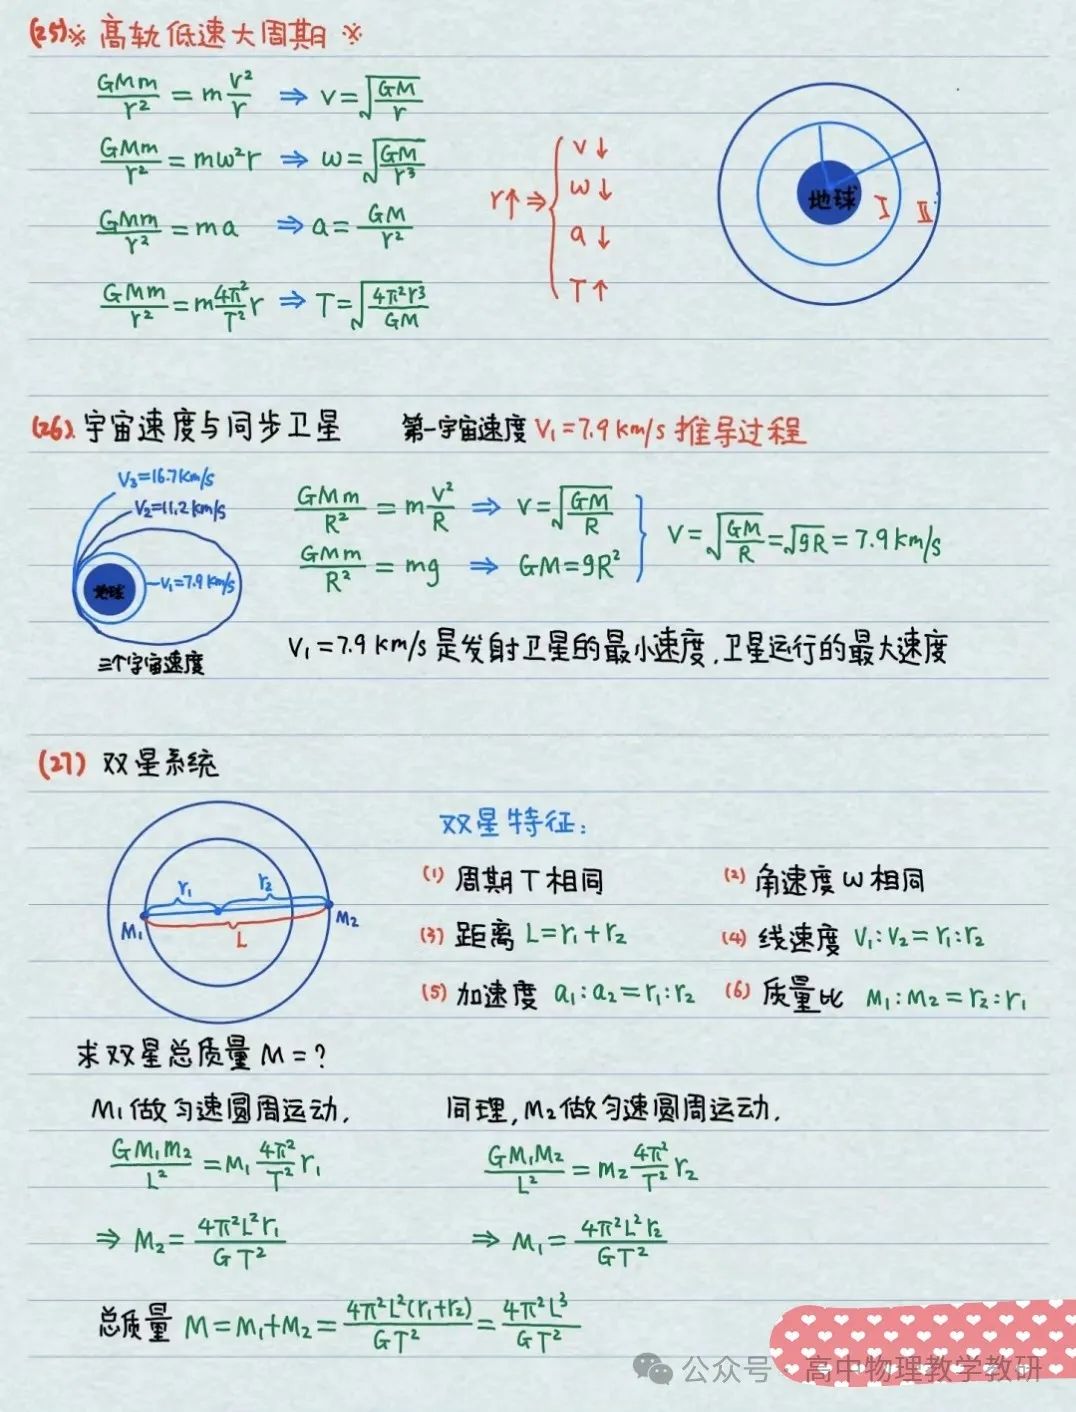 (25)※ 高轨低速大周期 ※
GMm/r² = m v²/r ⇒ v=√(GM/r)
GMm/r² = mω²r ⇒ ω=√(GM/r³)
GMm/r² = ma ⇒ a= GM/r²
GMm/r² = m 4π²/T² r ⇒ T=√(4π²r³/GM)
r↑⇒{
v↓
ω↓
a↓
T↑
地球 I II
(26) 宇宙速度与同步卫星 第一宇宙速度 V₁=7.9km/s 推导过程
V₃=16.7km/s
V₂=11.2km/s
地球 V₁=7.9km/s
三个宇宙速度
GMm/R² = m v²/R ⇒ v=√(GM/R)
GMm/R² = mg ⇒ GM=gR²
} v=√(GM/R)=√gR=7.9km/s
V₁=7.9km/s是发射卫星的最小速度,卫星运行的最大速度
(27) 双星系统
r₁ r₂
M₁ L M₂
双星特征:
(1) 周期T相同 (2) 角速度ω相同
(3) 距离 L=r₁+r₂ (4) 线速度 V₁:V₂=r₁:r₂
(5) 加速度 a₁:a₂=r₁:r₂ (6) 质量比 M₁:M₂=r₂:r₁
求双星总质量M=?
M₁做匀速圆周运动, 同理,M₂做匀速圆周运动,
GM₁M₂/L² = M₁ 4π²/T² r₁ GM₁M₂/L² = M₂ 4π²/T² r₂
⇒ M₂= 4π²L²r₁/GT² ⇒ M₁= 4π²L²r₂/GT²
总质量 M=M₁+M₂= 4π²L²(r₁+r₂)/GT² = 4π²L³/GT²
公众号·高中物理教学教研